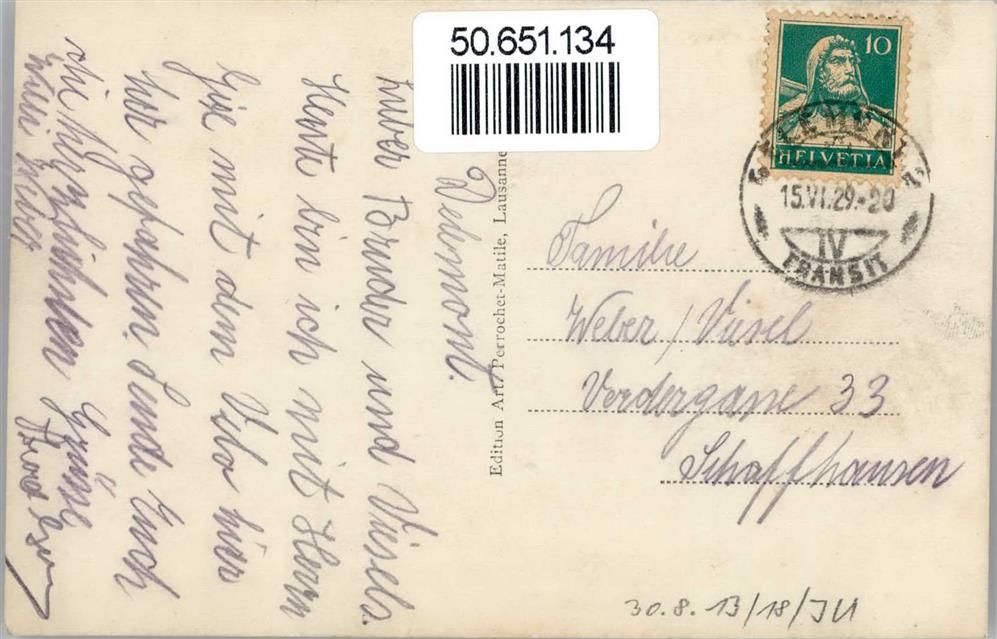 50.651.134
Delémont.
Lieber Bruder und Väsels.
Heute bin ich mit Herrn
mit dem Velo hier
her gefahren. Sende Euch
die herzlichsten Grüsse
Edition Art. Perrochet-Matile, Lausanne
10
HELVETIA
15.VI.29.-20
IV
TRANSIT
Familie
Weber / Väsel
Vordergasse 33
Schaffhausen
30.8.13/18/JU